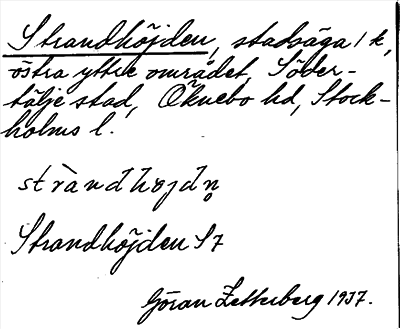 Strandhöjden, stadsäga 1 k,
östra yttre området, Söder-
tälje stad, Öknebo hd, Stock-
holms l.
stràndhøjdn̥
Strandhöjden S7
Göran Zetterberg 1937.